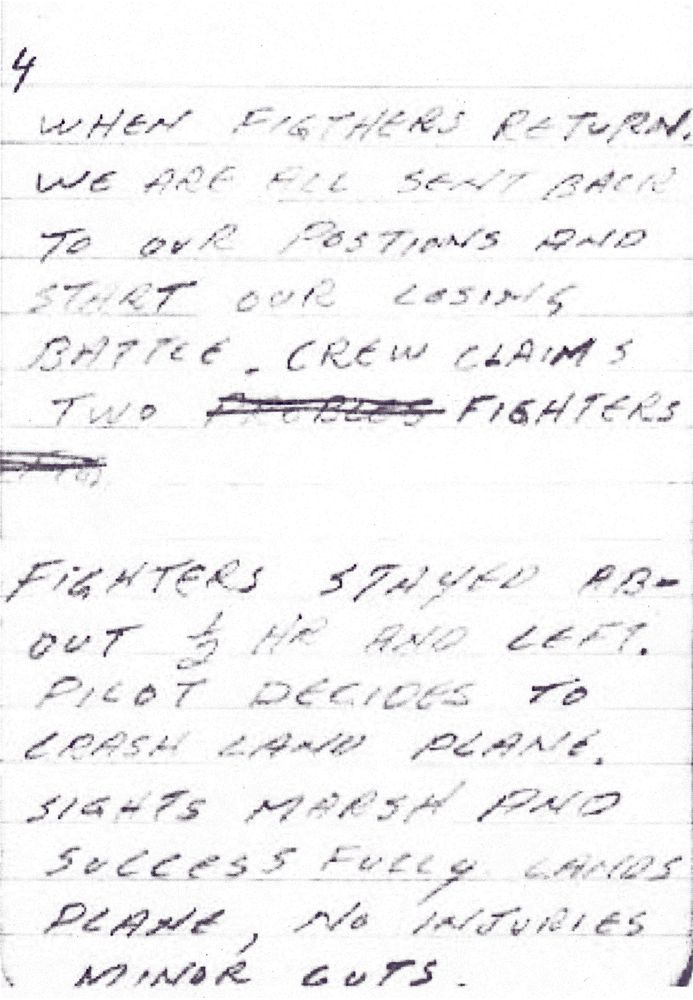 4
WHEN FIGTHERS RETURN.
WE ARE ALL SENT BACK
TO OUR POSTIONS AND
START OUR LOSING
BATTLE. CREW CLAIMS
TWO PROBLES FIGHTERS
FIGHTERS STAYED AB-
OUT 1/2 HR AND LEFT.
PILOT DECIDES TO
CRASH LAND PLANE.
SIGHTS MARSH AND
SUCCESSFULLY LANDS
PLANE, NO INJURIES
MINOR CUTS.